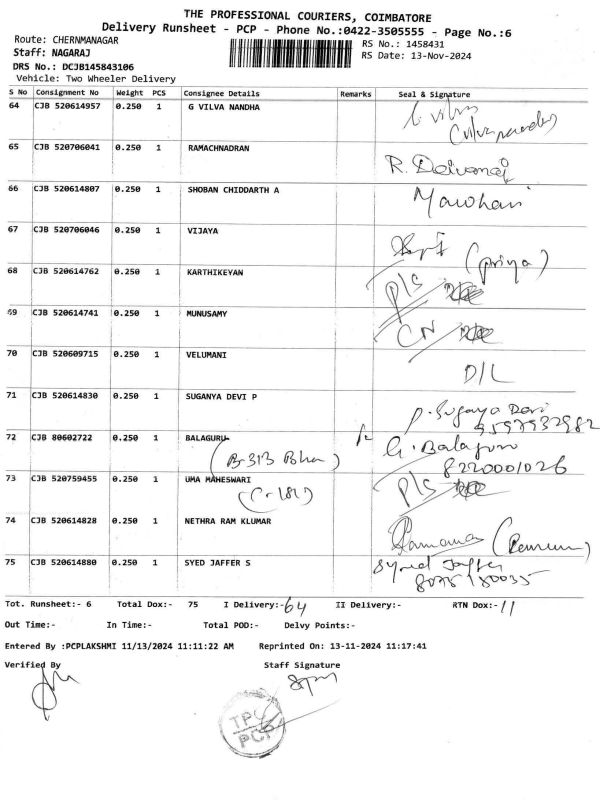 THE PROFESSIONAL COURIERS, COIMBATORE
Delivery Runsheet - PCP - Phone No.:0422-3505555 - Page No.:6
Route: CHERNMANAGAR
RS No.: 1458431
Staff: NAGARAJ
RS Date: 13-Nov-2024
DRS No.: DCJB145843106
Vehicle: Two Wheeler Delivery
S No Consignment No Weight PCS Consignee Details Remarks Seal & Signature
64 CJB 520614957 0.250 1 G VILVA NANDHA
65 CJB 520706041 0.250 1 RAMACHNADRAN
66 CJB 520614807 0.250 1 SHOBAN CHIDDARTH A
67 CJB 520706046 0.250 1 VIJAYA (priya)
68 CJB 520614762 0.250 1 KARTHIKEYAN P/S
69 CJB 520614741 0.250 1 MUNUSAMY CN
70 CJB 520609715 0.250 1 VELUMANI D/L
71 CJB 520614830 0.250 1 SUGANYA DEVI P P. Sugaya Devi
9597932982
72 CJB 80602722 0.250 1 BALAGURU G. Balaguru
(B-313 Bha) 8220001026
73 CJB 520759455 0.250 1 UMA MAHESWARI P/S
(C-181)
74 CJB 520614828 0.250 1 NETHRA RAM KLUMAR
75 CJB 520614880 0.250 1 SYED JAFFER S Syed Jaffer
Tot. Runsheet:- 6 Total Dox:- 75 I Delivery:- 64 II Delivery:- RTN Dox:- 11
Out Time:- In Time:- Total POD:- Delvy Points:-
Entered By :PCPLAKSHMI 11/13/2024 11:11:22 AM Reprinted On: 13-11-2024 11:17:41
Verified By Staff Signature
TPC
PCP